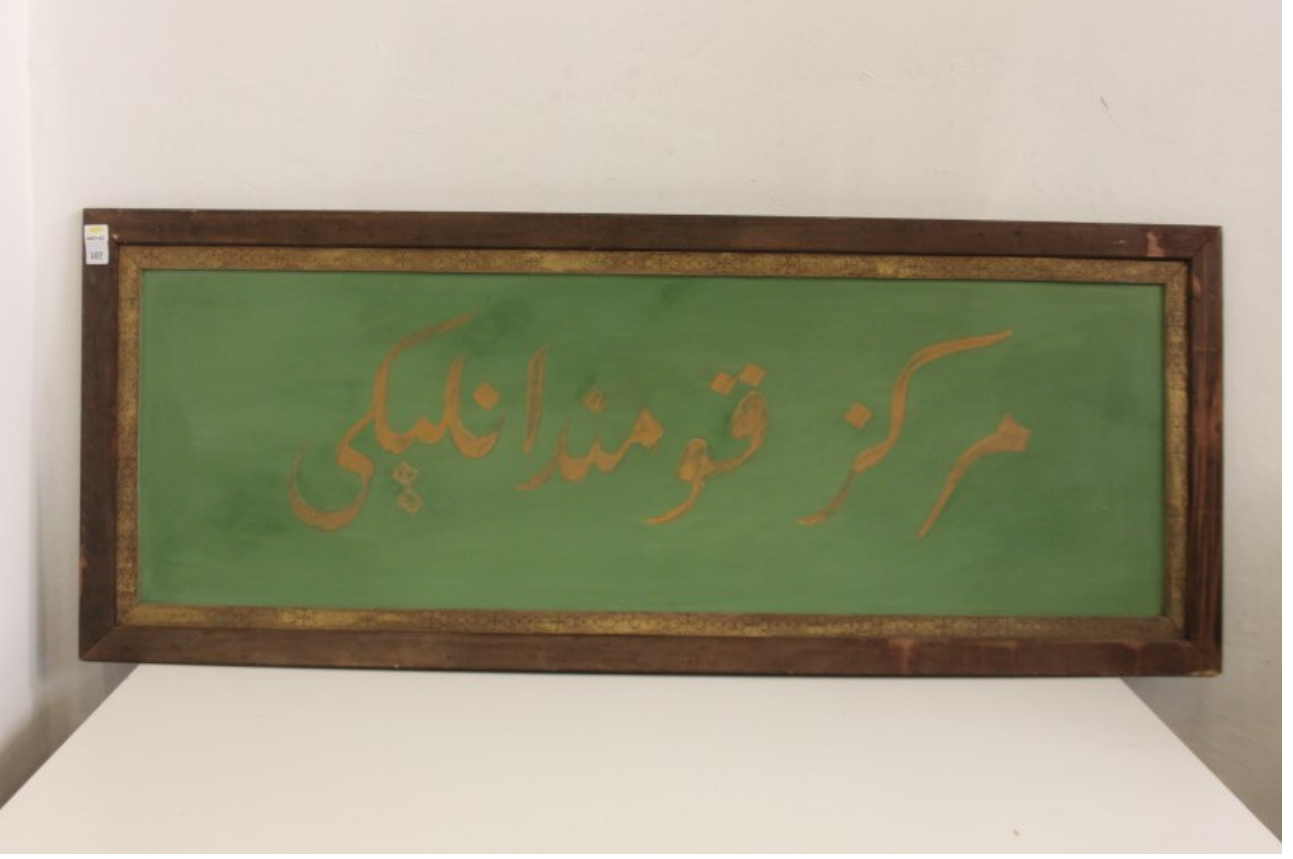 مركز قومندانلیكی